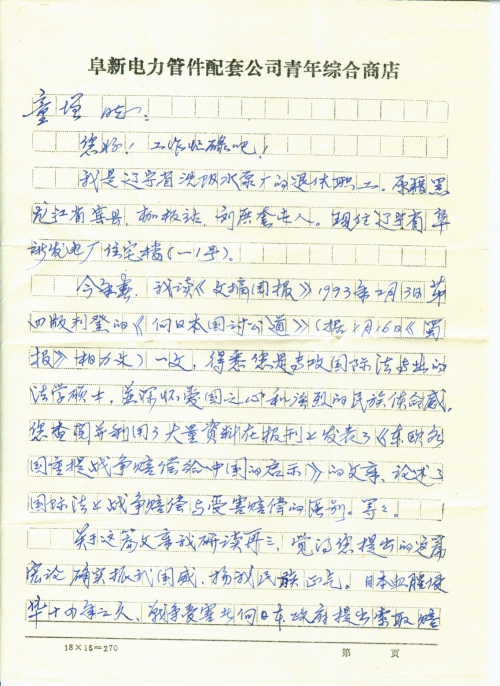 阜新电力管件配套公司青年综合商店
童增
您好！工作忙碌吧！
我是辽宁省沈阳水泵厂的退休职工。原籍黑
龙江省宾县，枷板站，刘屯人。现住辽宁省阜
新发电厂住宅楼（一1号）。
今年春，我读《文摘周报》1993年2月3日第
四版刊登的《向日本国讨公道》（据1月16日《蜀
报》相力文）一文，得悉您是专攻国际法专业的
法学硕士，并深怀爱国之心和强烈的民族使命感。
您查阅并利用了大量资料在报刊上发表了《东欧各
国重提战争赔偿给中国的启示》的文章，论述了
国际法上战争赔偿与受害赔偿的区别。等々。
关于这篇文章我研读再三，觉得您提出的这篇
宏论确实振我国威，扬我民族正气。日本血腥侵
华十四年之久，战争受害者向日本政府提出索取赔
18×15=270
第 页